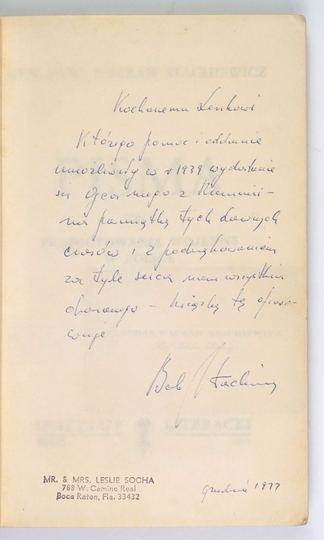 Kochanemu Lenkowi
Którego pomoc i oddanie
umożliwiły w r 1939 wydostanie
się Ojca mego z Rumunii -
na pamiątkę tych dawnych
czasów i z podziękowaniem
za tyle serca nam wszystkim
okazanego - książkę tę ofiaro-
wuje
Bob
MR. & MRS. LESLIE SOCHA
788 W. Camino Real
Boca Raton, Fla. 33432
grudzień 1977